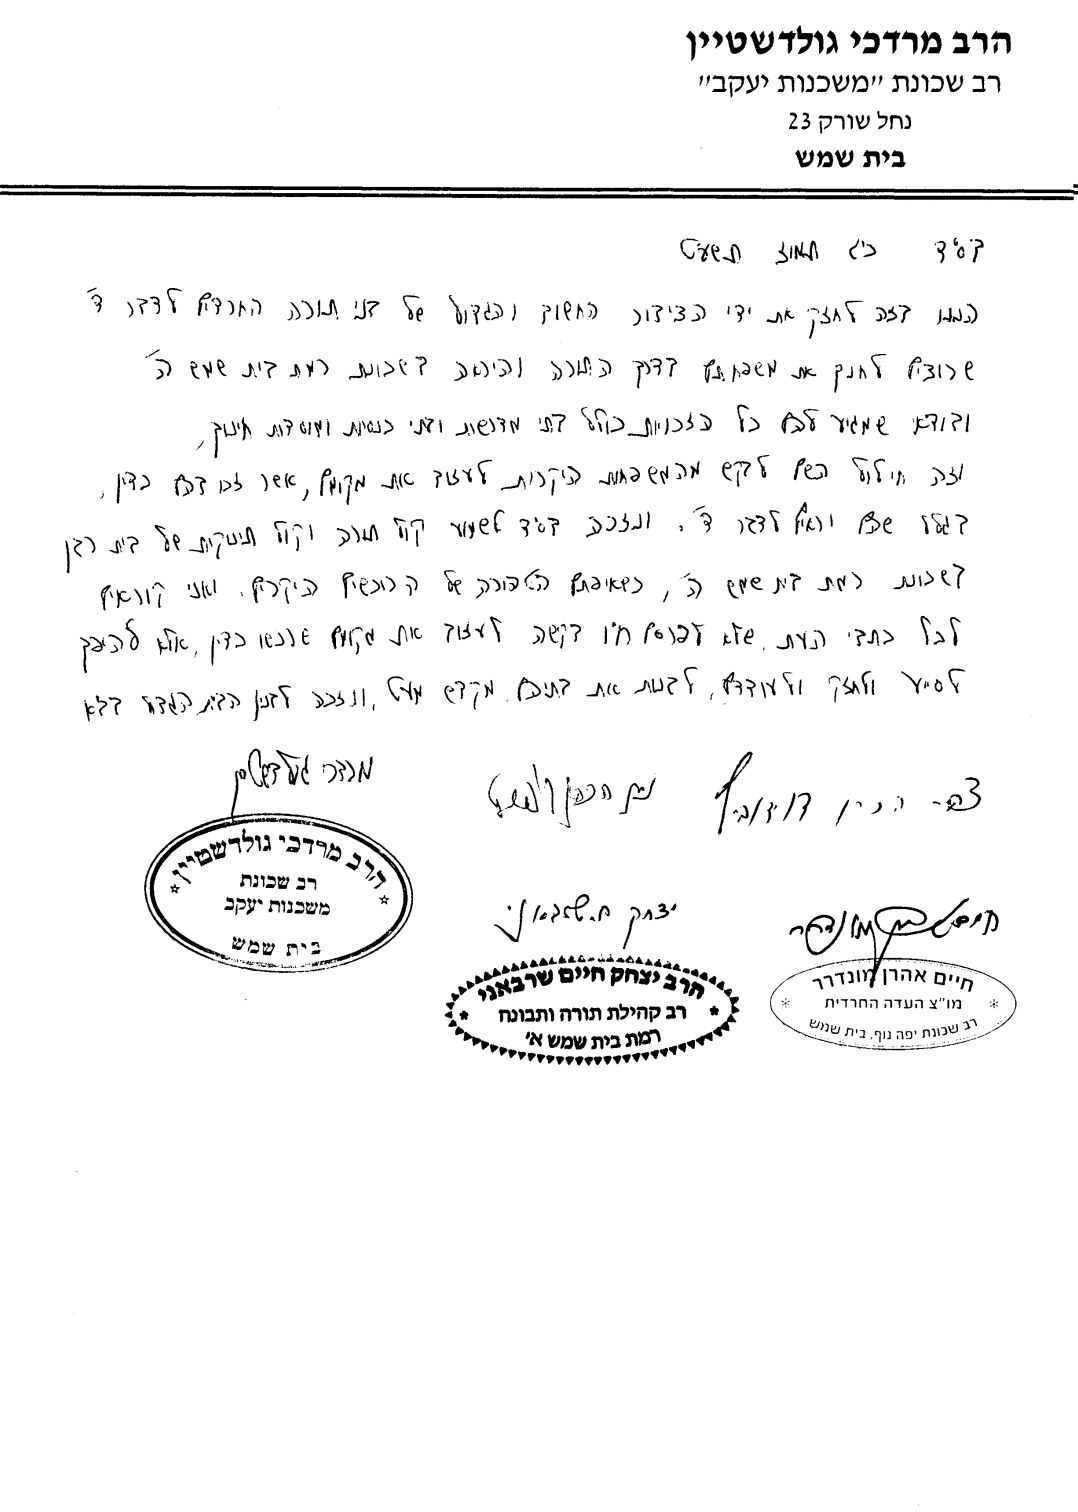 הרב מרדכי גולדשטיין
רב שכונת "משכנות יעקב"
נחל שורק 23
בית שמש
בס"ד כ"ג תמוז תשע"ט
הננו בזה לחזק את ידי הציבור החשוב והגדול של בני תורה החרדים לדבר ד'
שרוצים לחנך את משפחתם בדרך התורה והיראה בשכונת רמת בית שמש ה'
ובודאי שמגיע להם כל הזכויות כולל בתי מדרשות ובתי כנסיות ומוסדות חינוך,
וזה חילול השם לבקש מהמשפחות היקרות לעזוב את מקומם, אשר זכו בהם כדין,
בגלל שהם יראים לדבר ד'. ונזכה בס"ד לשמוע קול תורה וקול תינוקות של בית רבן
בשכונת רמת בית שמש ה', כשאיפתם הטהורה של הרוכשים היקרים. ואני קוראים
לכל כתבי העת, שלא לפרסם ח"ו בקשה לעזוב את מקומם שרכשו כדין, אלא להיפך
לסייע ולחזק ולעודדם, לבנות את בתיהם מקדש מעט, ונזכה לבנין הבית הגדול בב"א
מרדכי גולדשטיין
הרב מרדכי גולדשטיין
רב שכונת
משכנות יעקב
בית שמש
יצחק ח. שרבאני
הרב יצחק חיים שרבאני
רב קהילת תורה ותבונה
רמת בית שמש א'
חיים אהרן מונדרר
חיים אהרן מונדרר
מו"צ העדה החרדית
רב שכונת יפה נוף, בית שמש